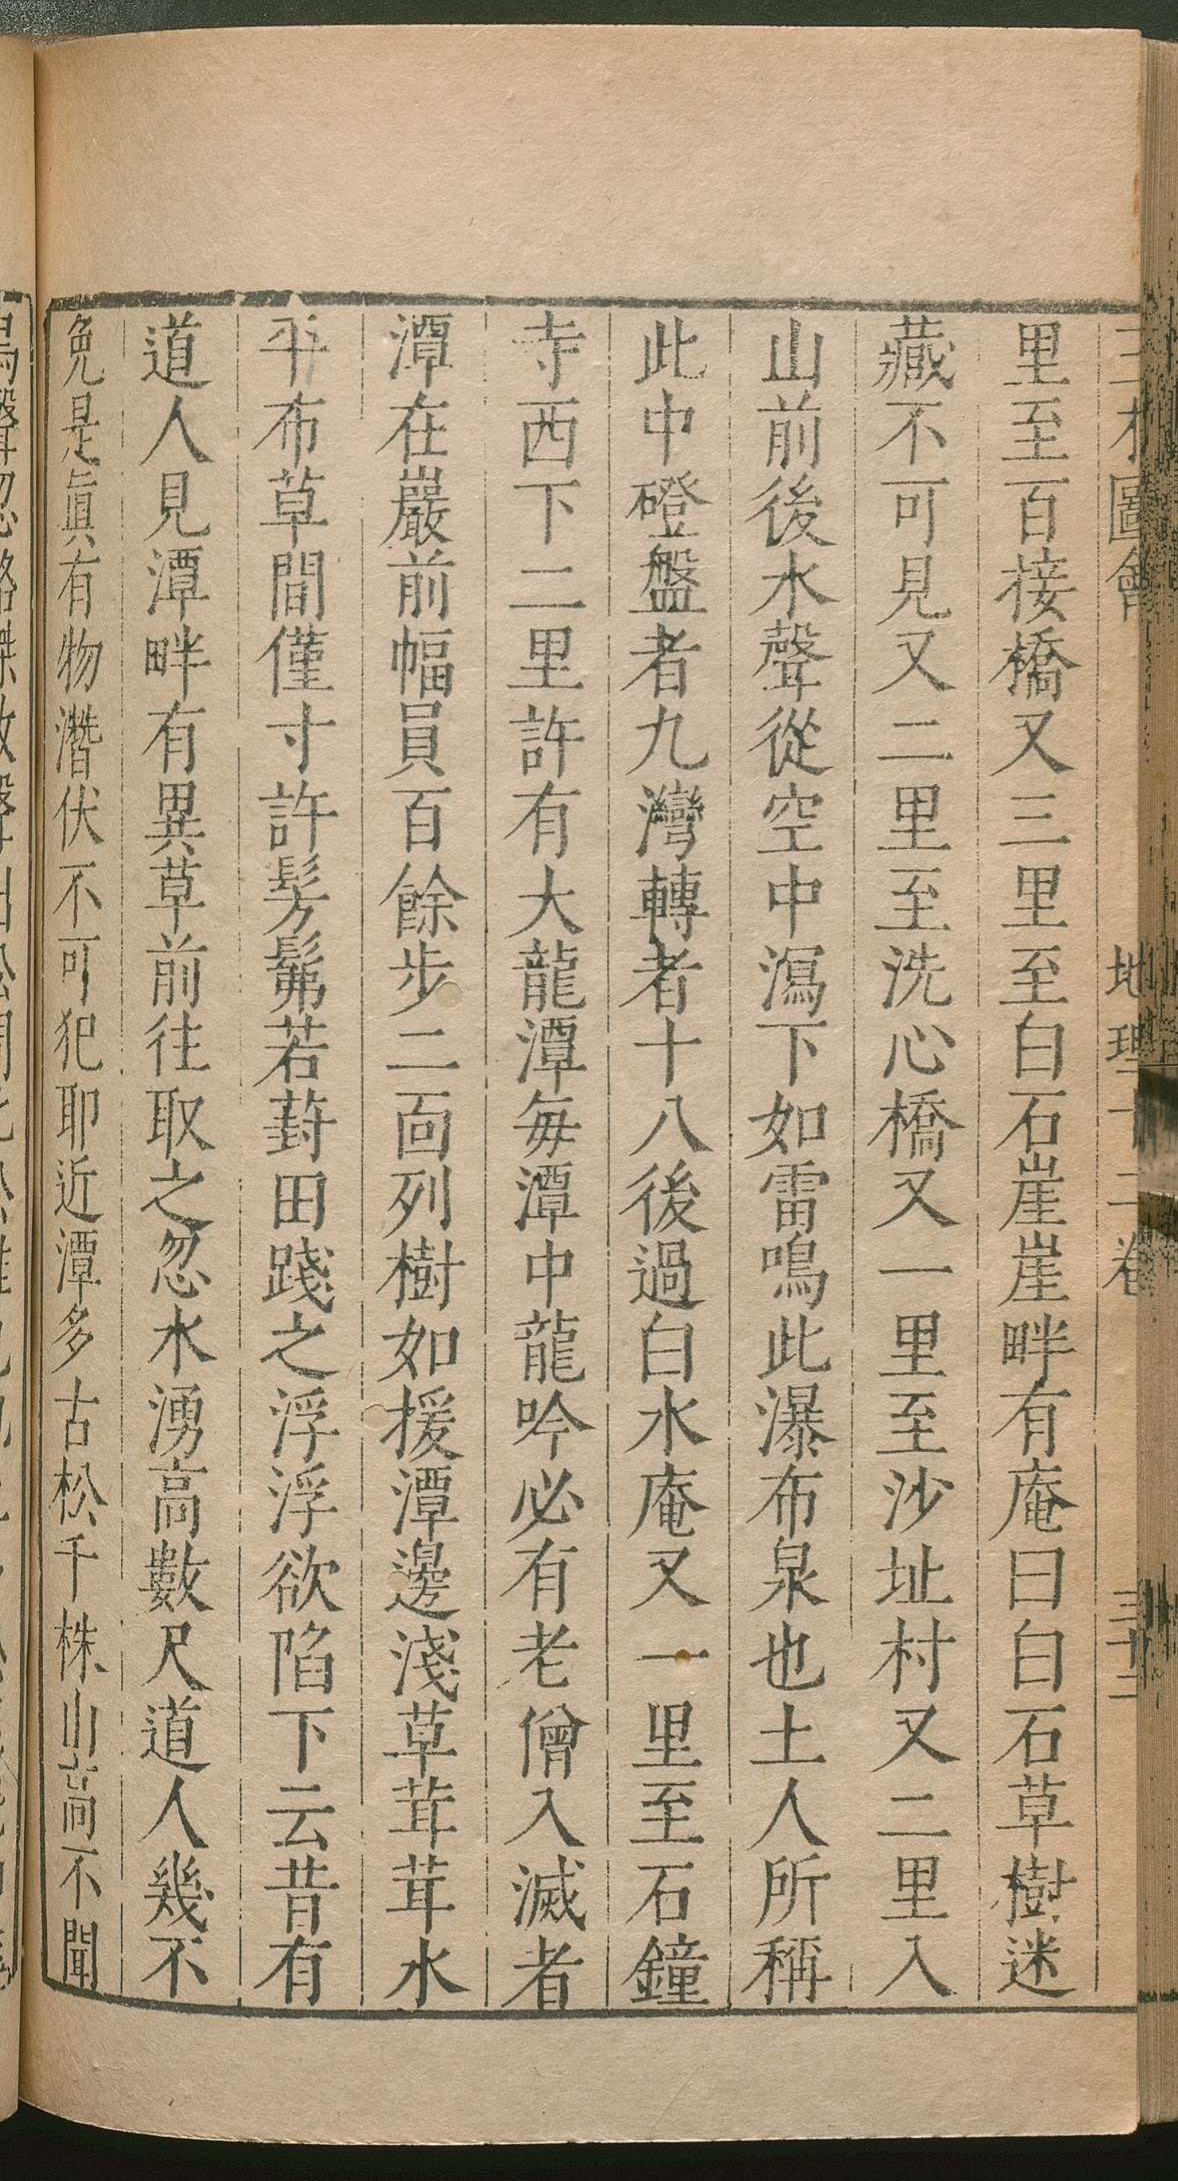 三才圖會 地理十二卷 三十二
里至百接橋又三里至白石崖崖畔有庵曰白石草樹迷
藏不可見又二里至洗心橋又一里至沙址村又二里入
山前後水聲從空中瀉下如雷鳴此瀑布泉也土人所稱
此中磴盤者九灣轉者十八後過白水庵又一里至石鐘
寺西下二里許有大龍潭每潭中龍吟必有老僧入滅者
潭在巖前幅員百餘步二面列樹如援潭邊淺草茸茸水
平布草間僅寸許髣髴若葑田踐之浮浮欲陷下云昔有
道人見潭畔有異草前往取之忽水湧高數尺道人幾不
免是眞有物潛伏不可犯耶近潭多古松千株山高不聞